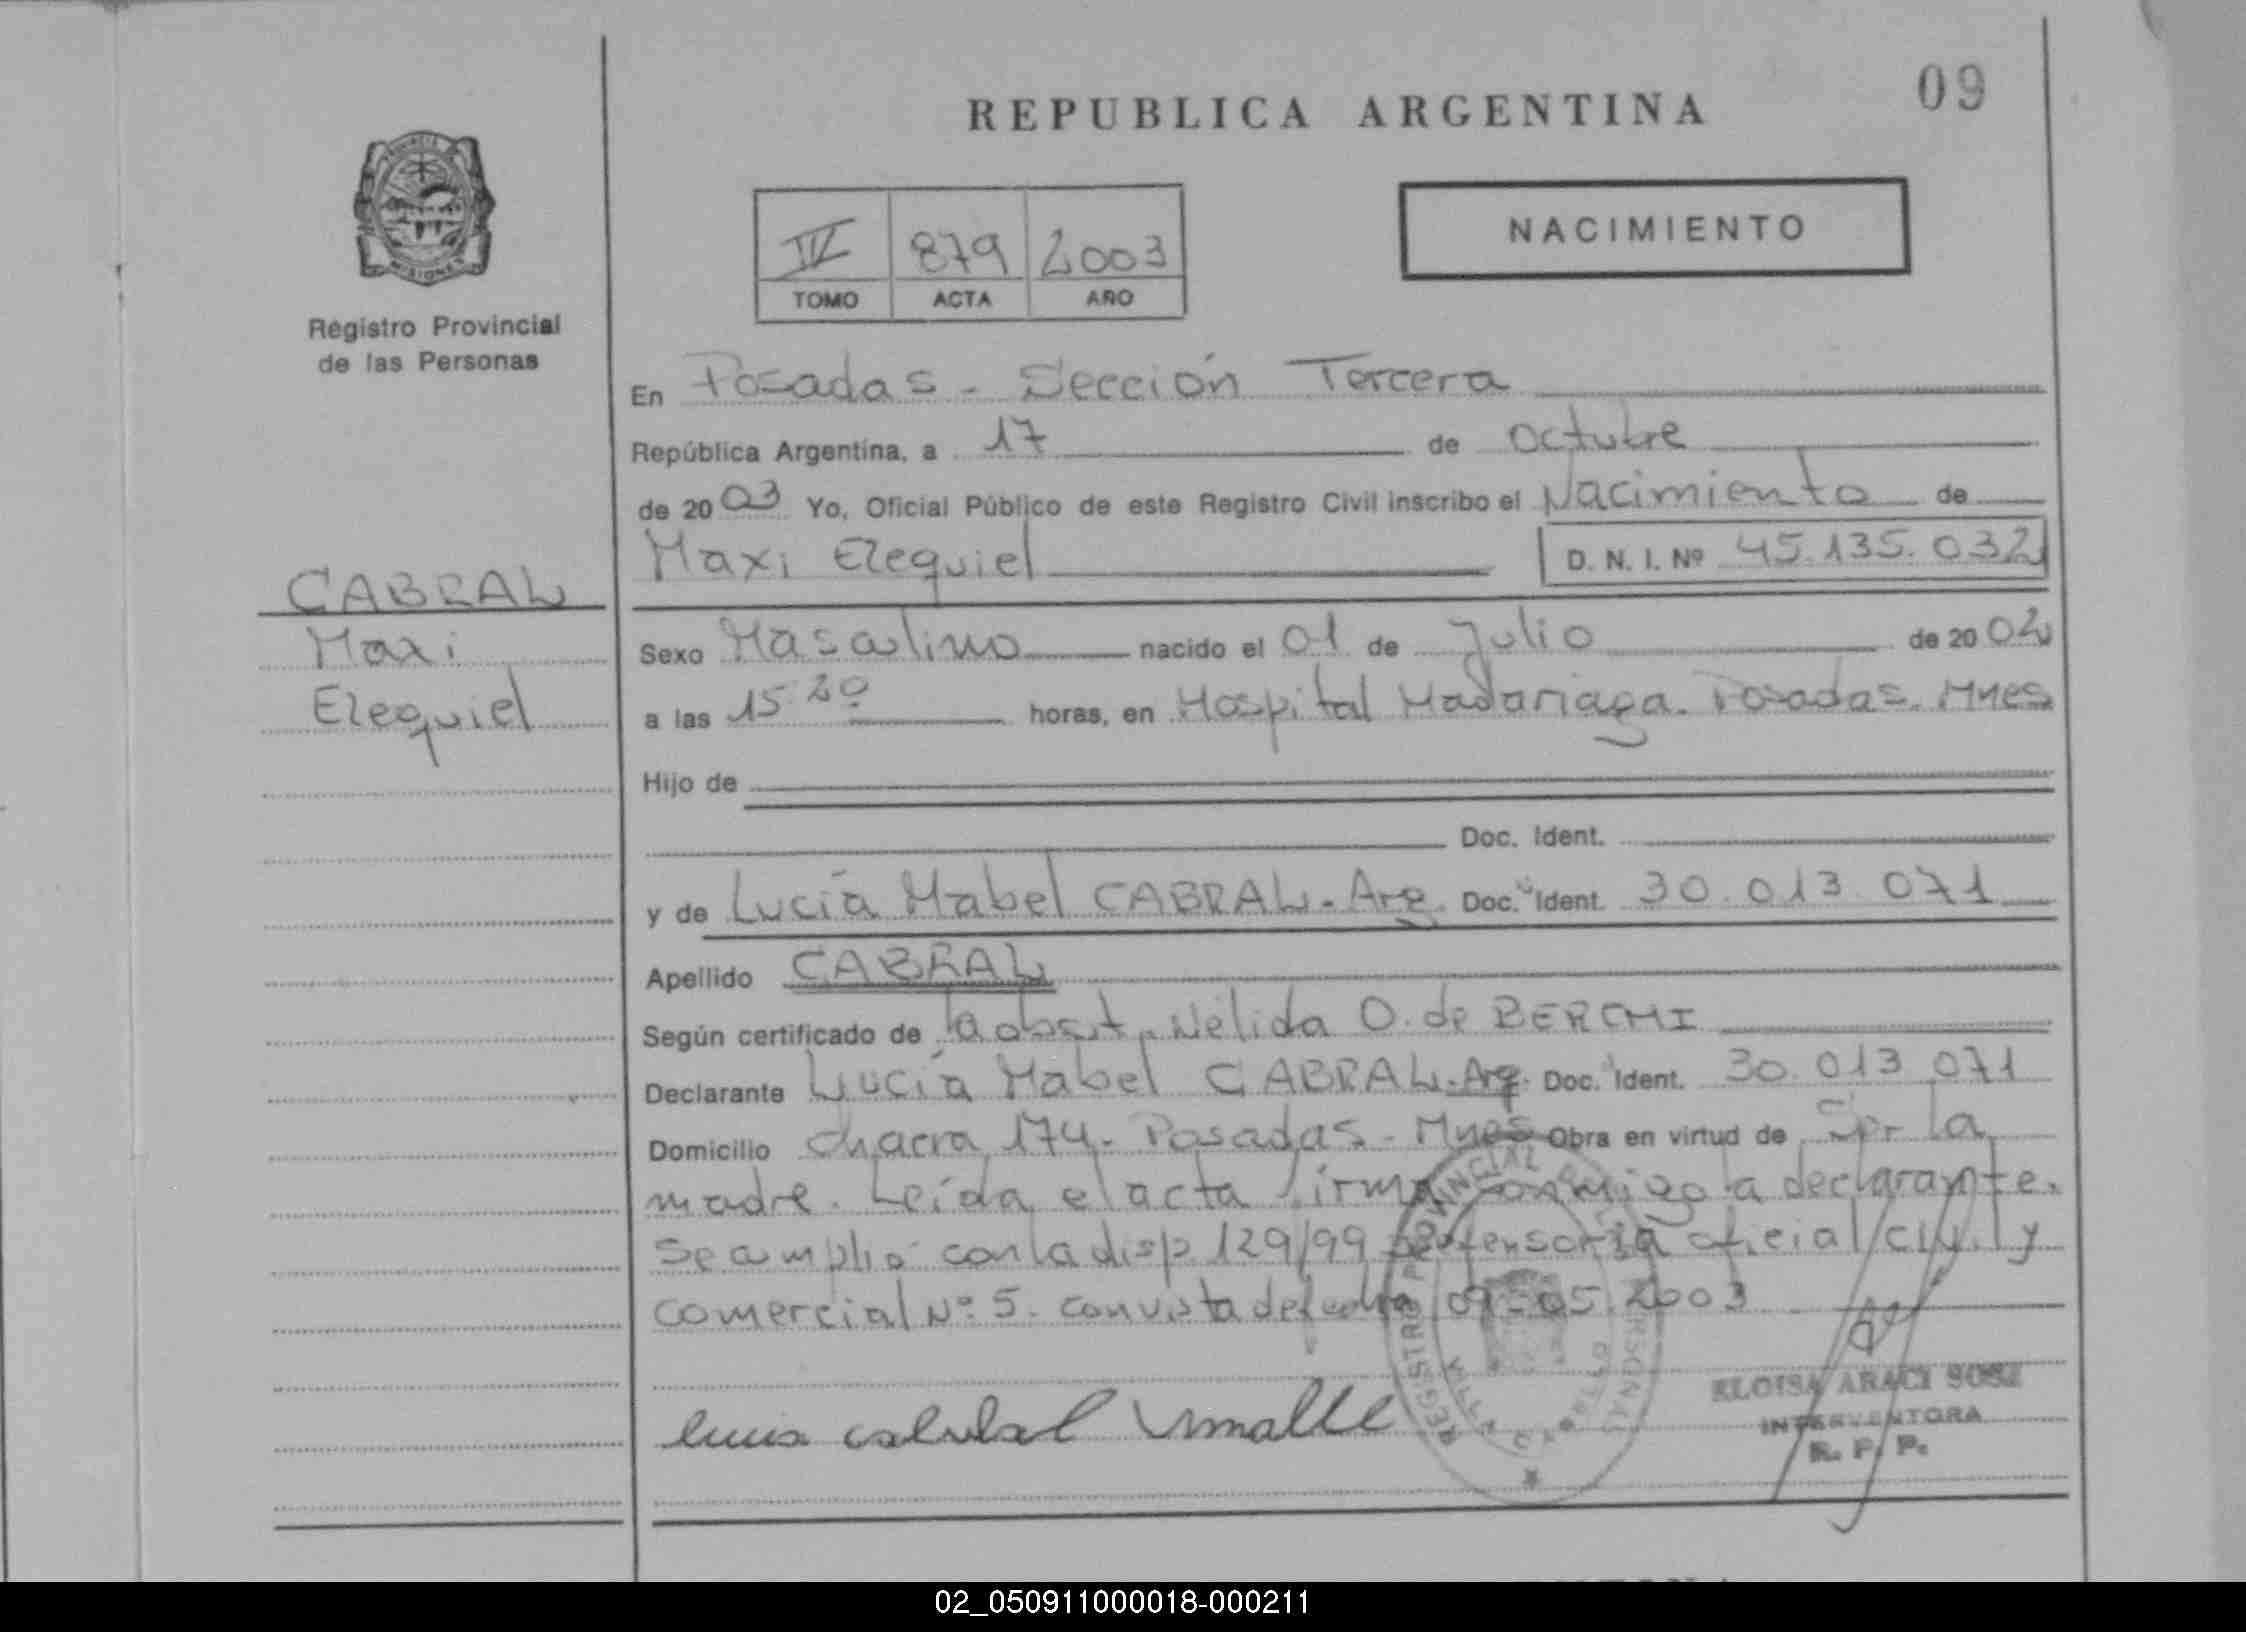 09
REPUBLICA ARGENTINA
NACIMIENTO
IV 879 2003
TOMO ACTA AÑO
PROVINCIA DE
MISIONES
Régistro Provincial
de las Personas
CABRAL
Maxi
Ezequiel
En Posadas - Sección Tercera
República Argentina, a 17 de octubre
de 2003 Yo, Oficial Público de este Registro Civil inscribo el Nacimiento de
Maxi Ezequiel D. N. I. Nº 45.135.032
Sexo Masculino nacido el 01 de Julio de 2002
a las 15:20 horas, en Hospital Madariaga. Posadas. Mnes
Hijo de
Doc. Ident.
y de Lucía Mabel CABRAL. Arg. Doc. Ident. 30.013.071
Apellido CABRAL
Según certificado de la obst. Nélida O. de BERCHI
Declarante Lucía Mabel CABRAL. Arg. Doc. Ident. 30.013.071
Domicilio chacra 174. Posadas - Mnes Obra en virtud de Ser la
madre. Leída el acta firma conmigo la declarante.
Se amplió con la disp. 129/99 defensoría oficial civil y
comercial Nº 5. con vista de fecha 09-05-2003
REGISTRO PROVINCIAL DE PERSONAS
ELOISA ARACI SOSA
INTERVENTORA
R. P. P.
02_050911000018-000211